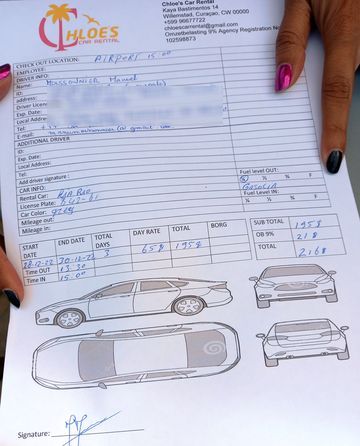 CHLOES
CAR RENTAL
Chloe's Car Rental
Kaya Bastimentos 14
Willemstad, Curaçao, CW 00000
+599 96677722
chloescarrental@gmail.com
Omzetbelasting 9% Agency Registration No
102598873
CHECK OUT LOCATION: AIRPORT 15:00
EMPLOYEE:
DRIVER INFO:
Name: Manuel
ID:
address:
Driver License
Exp. Date:
Local Address
Tel:
E-mail:
ADDITIONAL DRIVER
ID:
Exp. Date:
Local Address:
Tel:
Add driver signature:
CAR INFO:
Rental Car: KIA RIO
License Plate:
Car Color: grey
Mileage out:
Mileage in:
Fuel level OUT:
¼ ½ ¾ F
GASOLIN
Fuel level IN:
¼ ½ ¾ F
START DATE END DATE TOTAL DAYS DAY RATE TOTAL BORG
28-12-22 30-12-22 3 65$ 195$
Time OUT 13.30
Time IN 15.00
SUB TOTAL 195$
OB 9% 21$
TOTAL 216$
Signature: